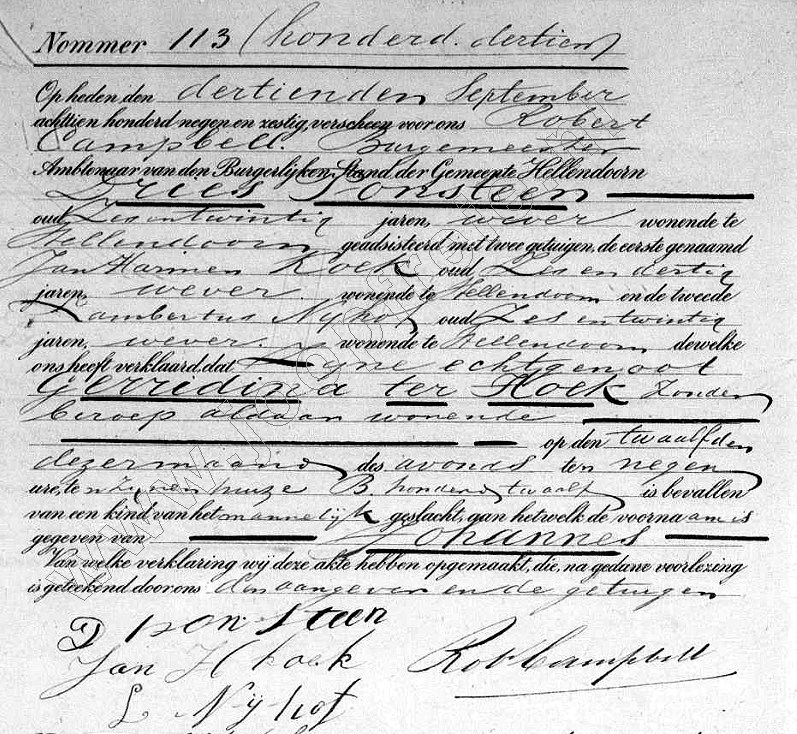 Nommer 113 (honderd dertien)
Op heden den dertienden September
achttien honderd negen en zestig, verscheen voor ons Robert
Campbell. Burgemeester
Ambtenaar van den Burgerlijken Stand der Gemeente Hellendoorn
Dries Ponsteen
oud Zes en twintig jaren, wever wonende te
Hellendoorn geadsisteerd met twee getuigen, de eerste genaamd
Jan Harmen Koek oud Zes en dertig
jaren, wever. wonende te Hellendoorn en de tweede
Lambertus Nyhof oud Zes en twintig
jaren, wever. wonende te Hellendoorn dewelke
ons heeft verklaard, dat Zyne echtgenoot
Gerridina ter Hoek Zonder
beroep aldaar wonende
op den twaalfden
dezer maand des avonds ten negen
ure, te n Zynen huize B honderd twaalf is bevallen
van een kind van het mannelijk geslacht, aan hetwelk de voorna am is
gegeven van Johannes
Van welke verklaring wij deze akte hebben opgemaakt, die, na gedane voorlezing
is geteekend door ons den aangever en de getuigen
D Ponsteen
Jan H koek Robt Campbell
L Nijhof